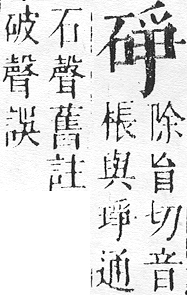 碀
除旨切音
棖與琤通
石聲舊註
破聲誤